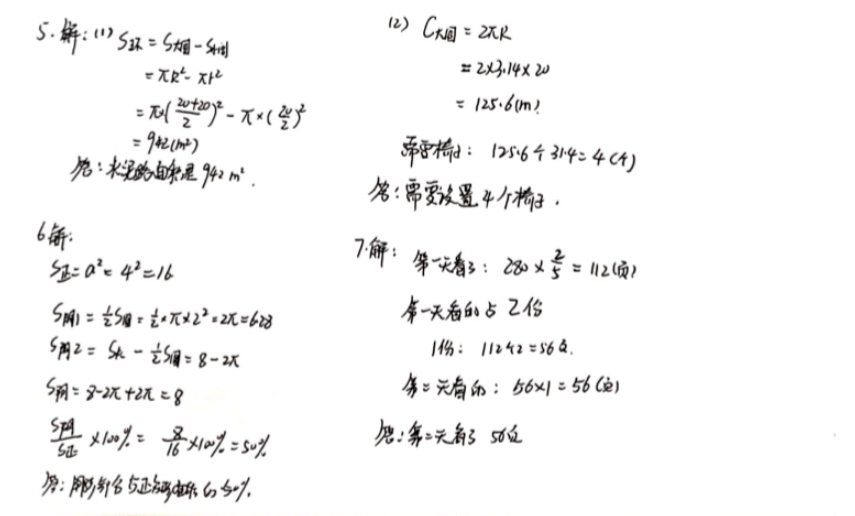 5.解:(1) S环 = S大圆 - S小圆
= πR² - πr²
= π×(20+20/2)² - π×(20/2)²
= 942(m²)
答:水泥路面积是 942 m².
(2) C大圆 = 2πR
= 2×3.14×20
= 125.6(m)
需要椅子: 125.6÷31.4=4(个)
答:需要设置4个椅子.
6解:
S正=a²=4²=16
S阴1=½S圆=½×π×2²=2π=6.28
S阴2= S长 - ½S圆=8-2π
S阴=8-2π+2π=8
S阴/S正 ×100%= 8/16×100%=50%
答:阴影部分占正方形面积的50%.
7.解: 第一天看了: 280×2/5=112(页)
第一天看的占2份
1份: 112÷2=56页.
第二天看的: 56×1=56(页)
答:第二天看了 56页